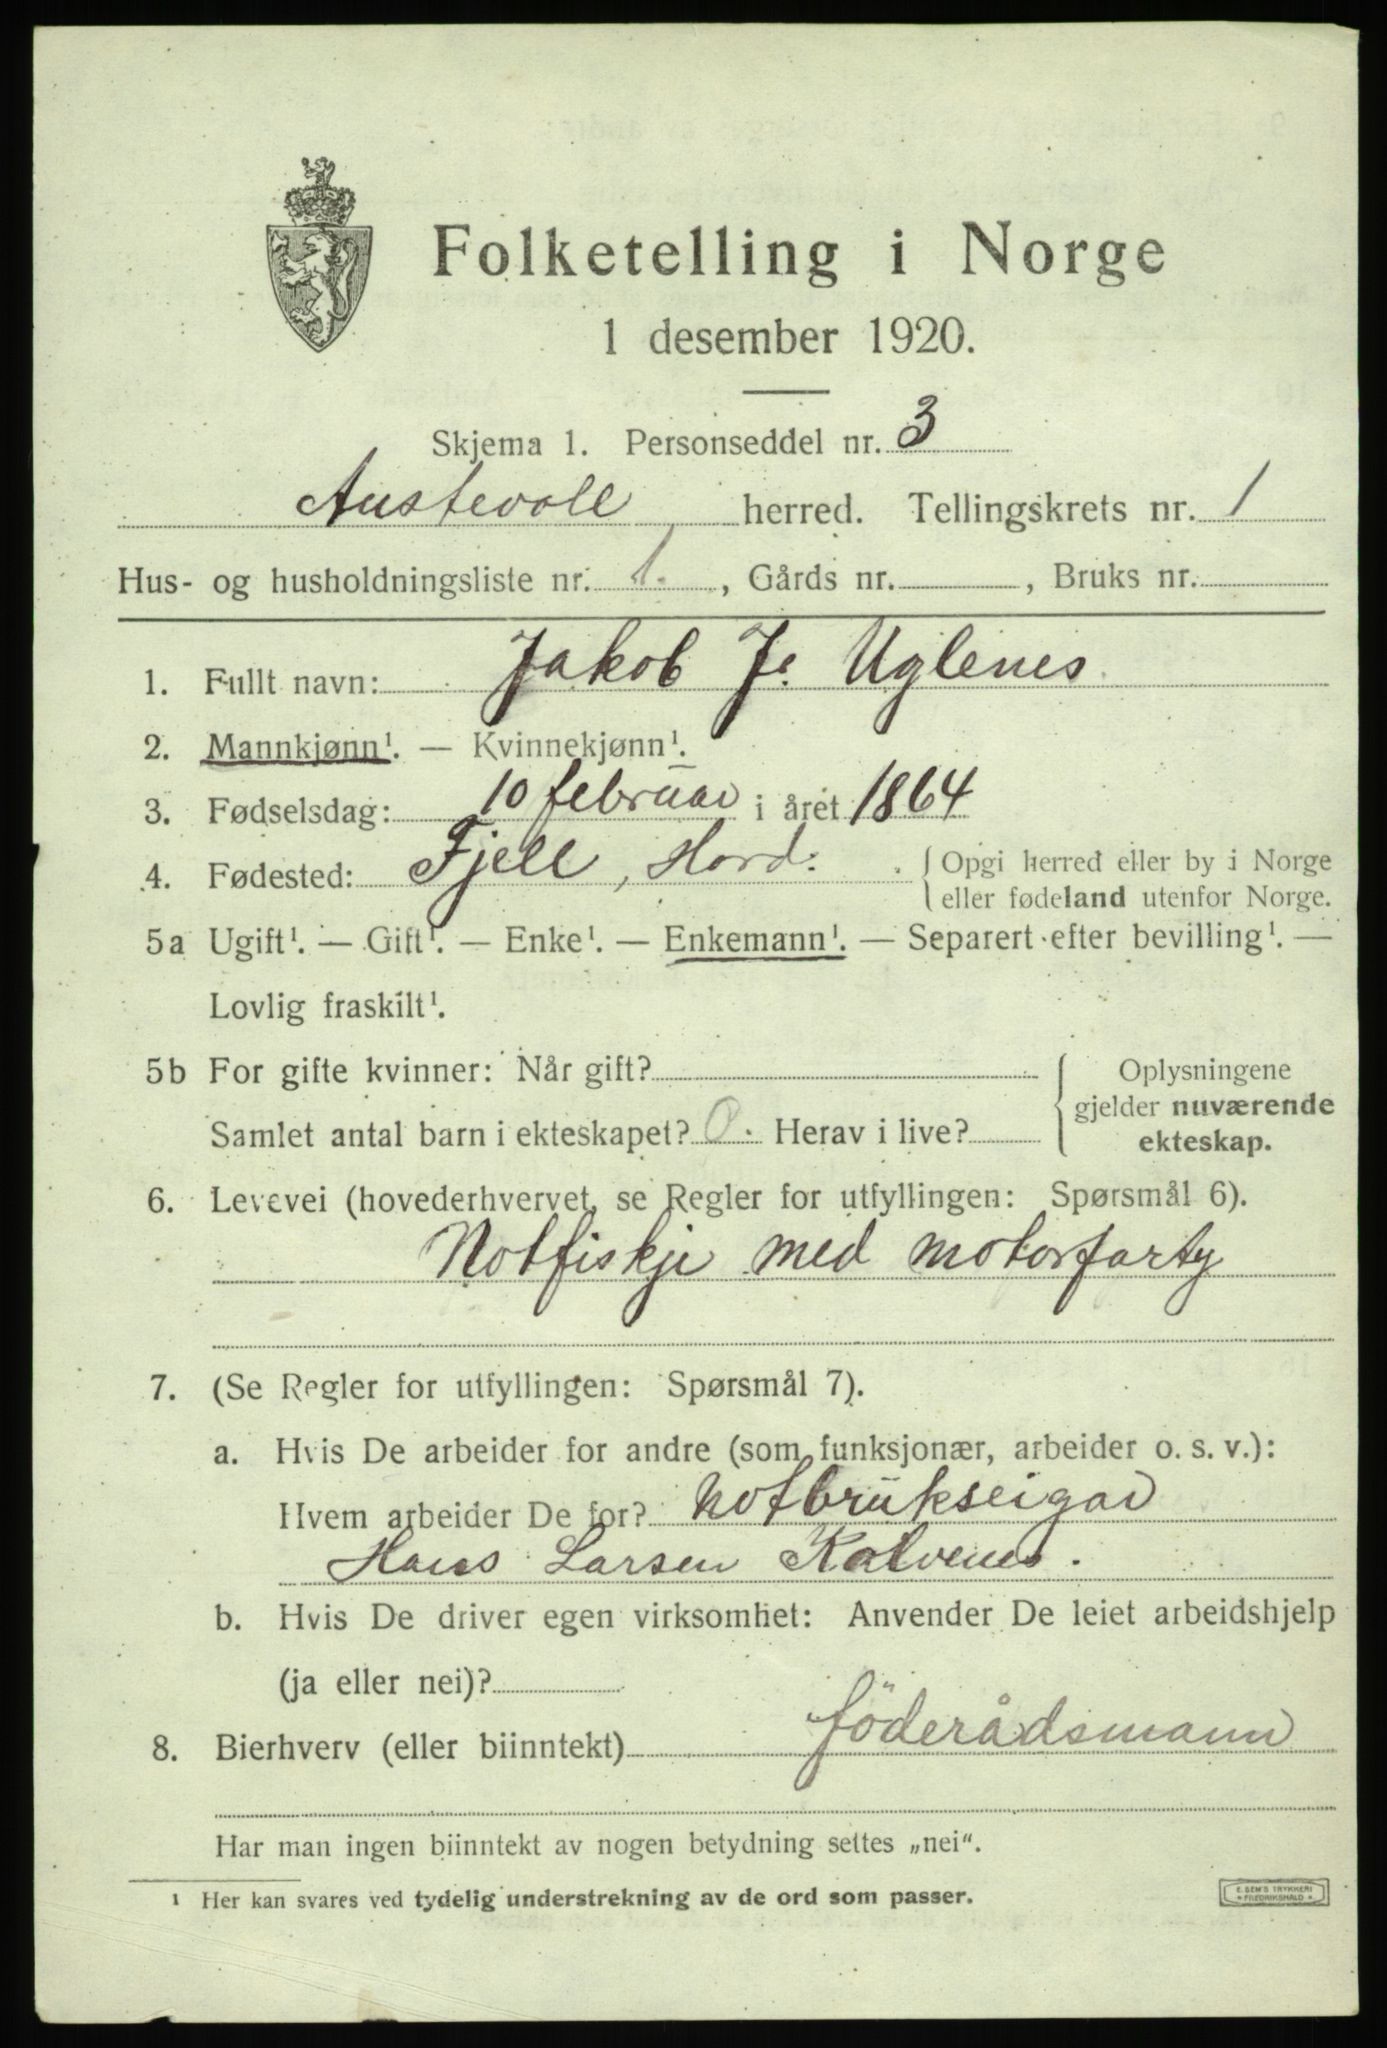 Folketelling i Norge
1 desember 1920.
Skjema 1. Personseddel nr. 3
Austevoll herred. Tellingskrets nr. 1
Hus- og husholdningsliste nr. 1. , Gårds nr. , Bruks nr.
1. Fullt navn: Jakob J. Uglenes
2. Mannkjønn¹. — Kvinnekjønn¹.
3. Fødselsdag: 10 februar i året 1864
4. Fødested: Fjell, Hord. { Opgi herred eller by i Norge
eller fødeland utenfor Norge.
5a Ugift¹. — Gift¹. — Enke¹. — Enkemann¹. — Separert efter bevilling¹. —
Lovlig fraskilt¹.
5b For gifte kvinner: Når gift? { Oplysningene
gjelder nuværende
Samlet antal barn i ekteskapet? 0. Herav i live? ekteskap.
6. Levevei (hovederhvervet, se Regler for utfyllingen: Spørsmål 6).
Notfiskje med motorfarty
7. (Se Regler for utfyllingen: Spørsmål 7).
a. Hvis De arbeider for andre (som funksjonær, arbeider o. s. v.):
Hvem arbeider De for? Notbrukseigar
Hans Larsen Kalvenes.
b. Hvis De driver egen virksomhet: Anvender De leiet arbeidshjelp
(ja eller nei)?
8. Bierhverv (eller biinntekt) föderådsmann
Har man ingen biinntekt av nogen betydning settes „nei".
¹ Her kan svares ved tydelig understrekning av de ord som passer.
E. SEM'S TRYKKERI
FREDRIKSHALD